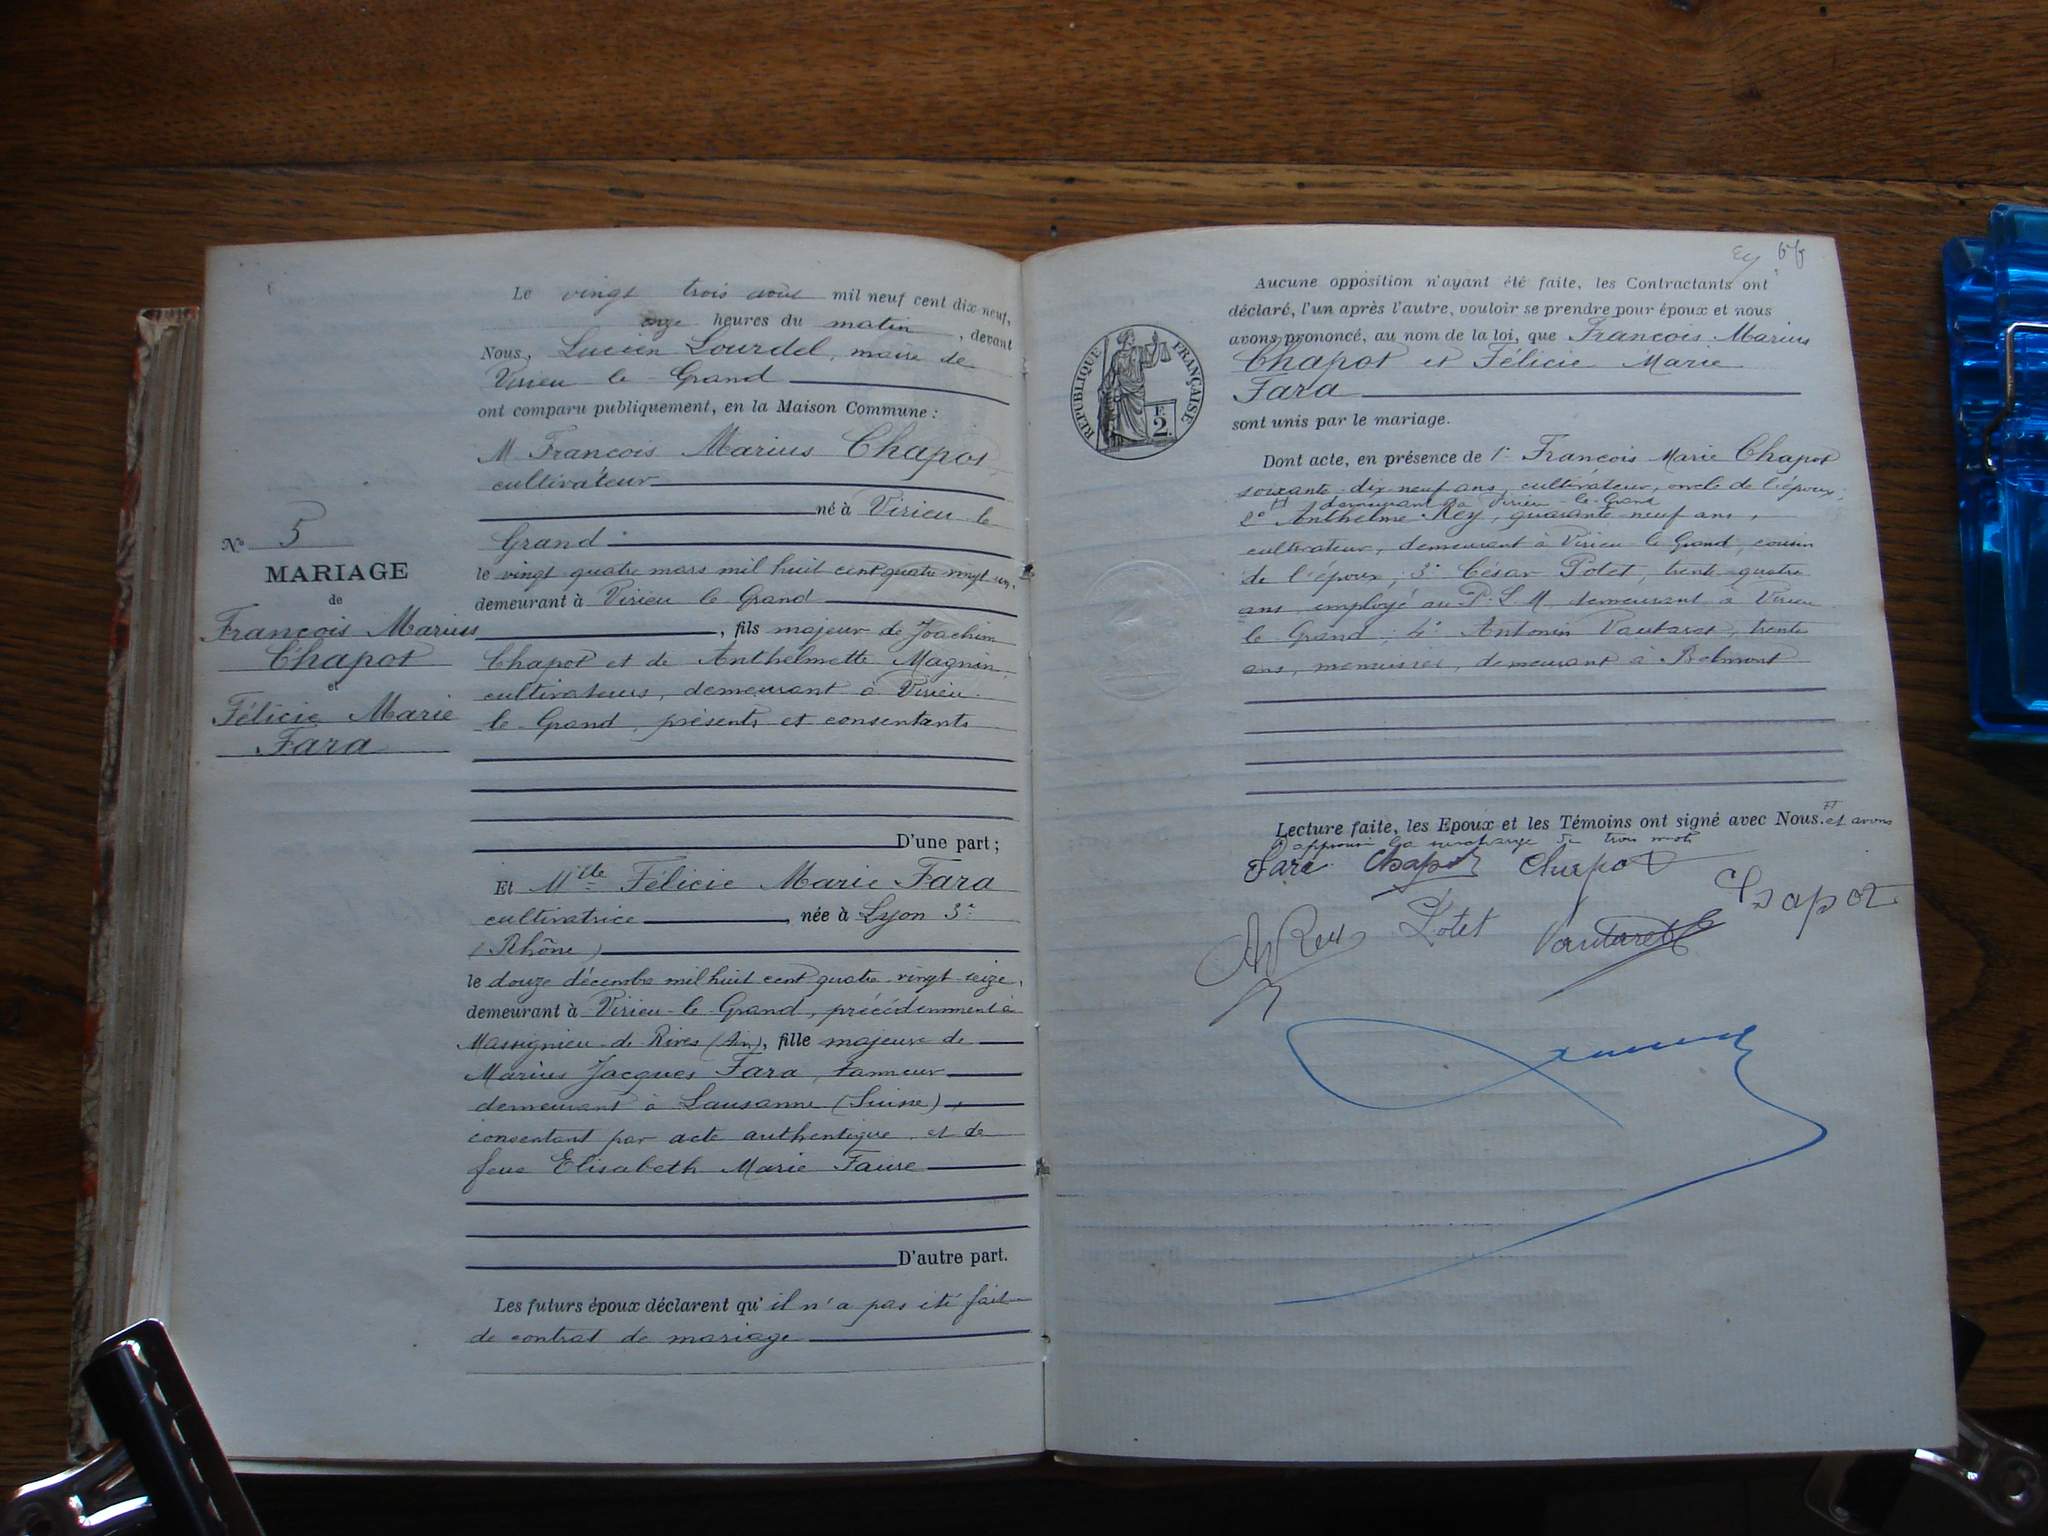 Le vingt trois août mil neuf cent dix neuf,
onze heures du matin, devant
Nous, Lucien Lourdel, maire de
Virieu le Grand
ont comparu publiquement, en la Maison Commune :
M François Marius Chapot
cultivateur
né à Virieu le
Grand
le vingt quatre mars mil huit cent quatre vingt un,
demeurant à Virieu le Grand
, fils majeur de Joachim
Chapot et de Anthelmette Magnin,
cultivateurs, demeurant à Virieu
le Grand, présents et consentants
D'une part ;
Et Mlle Félicie Marie Fara
cultivatrice, née à Lyon 3e
(Rhône)
le douze décembre mil huit cent quatre vingt seize,
demeurant à Virieu-le-Grand, précédemment à
Massignieu-de-Rives (Ain), fille majeure de
Marius Jacques Fara, tanneur
demeurant à Lausanne (Suisse),
consentant par acte authentique, et de
feue Elisabeth Marie Faure
D'autre part.
Les futurs époux déclarent qu'il n'a pas été fait
de contrat de mariage
No 5
MARIAGE
de
François Marius
Chapot
et
Félicie Marie
Fara
Aucune opposition n'ayant été faite, les Contractants ont
déclaré, l'un après l'autre, vouloir se prendre pour époux et nous
avons prononcé, au nom de la loi, que François Marius
Chapot et Félicie Marie
Fara
sont unis par le mariage.
Dont acte, en présence de 1° François Marie Chapot
soixante-dix neuf ans, cultivateur, oncle de l'époux,
demeurant à Virieu-le-Grand
2° Anthelme Rey, quarante neuf ans,
cultivateur, demeurant à Virieu le Grand, cousin
de l'époux ; 3° César Potet, trente quatre
ans, employé au P.L.M. demeurant à Virieu
le Grand ; 4° Antonin Vautaret, trente
ans, menuisier, demeurant à Belmont
Lecture faite, les Epoux et les Témoins ont signé avec Nous. et avons
approuvé la surcharge de trois mots
Fara Chapot Chapot
Chapot
A Rey Potet Vautaret
RÉPUBLIQUE FRANÇAISE
2